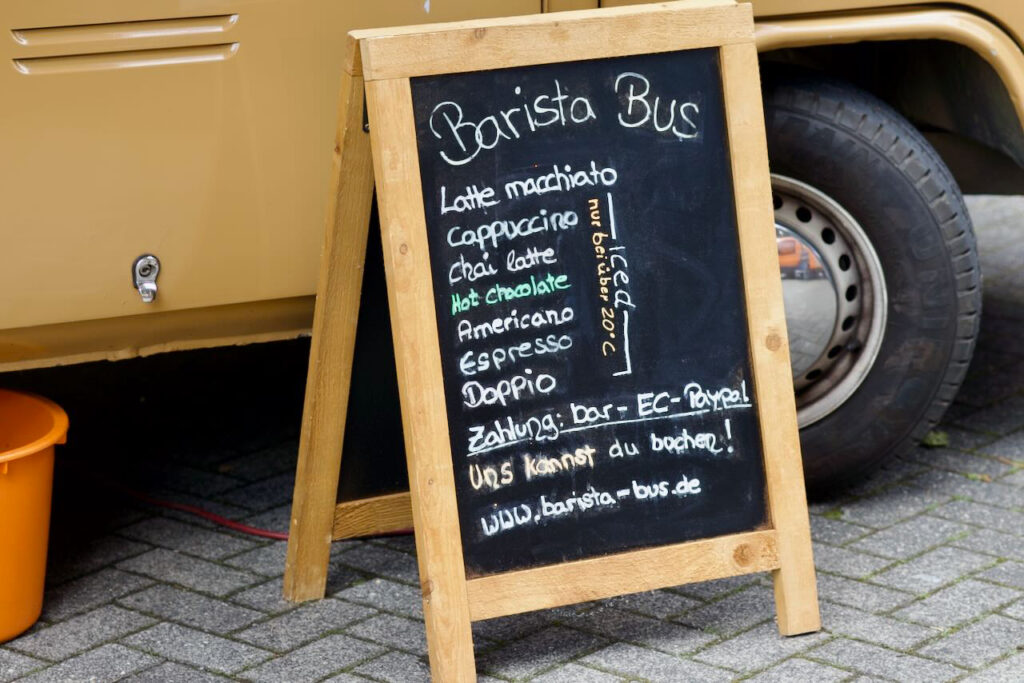 Barista Bus
Latte macchiato
Cappuccino
Chai latte
Hot chocolate
Americano
Espresso
Doppio
Iced
nur bei über 20°C
Zahlung: bar - EC - Paypal
Uns kannst du buchen!
www.barista-bus.de